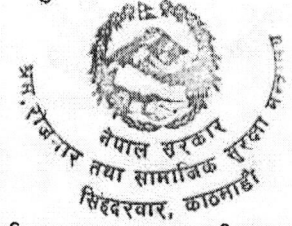 नेपाल सरकार
श्रम, रोजगार तथा सामाजिक सुरक्षा मन्त्रालय
सिंहदरवार, काठमाडौं